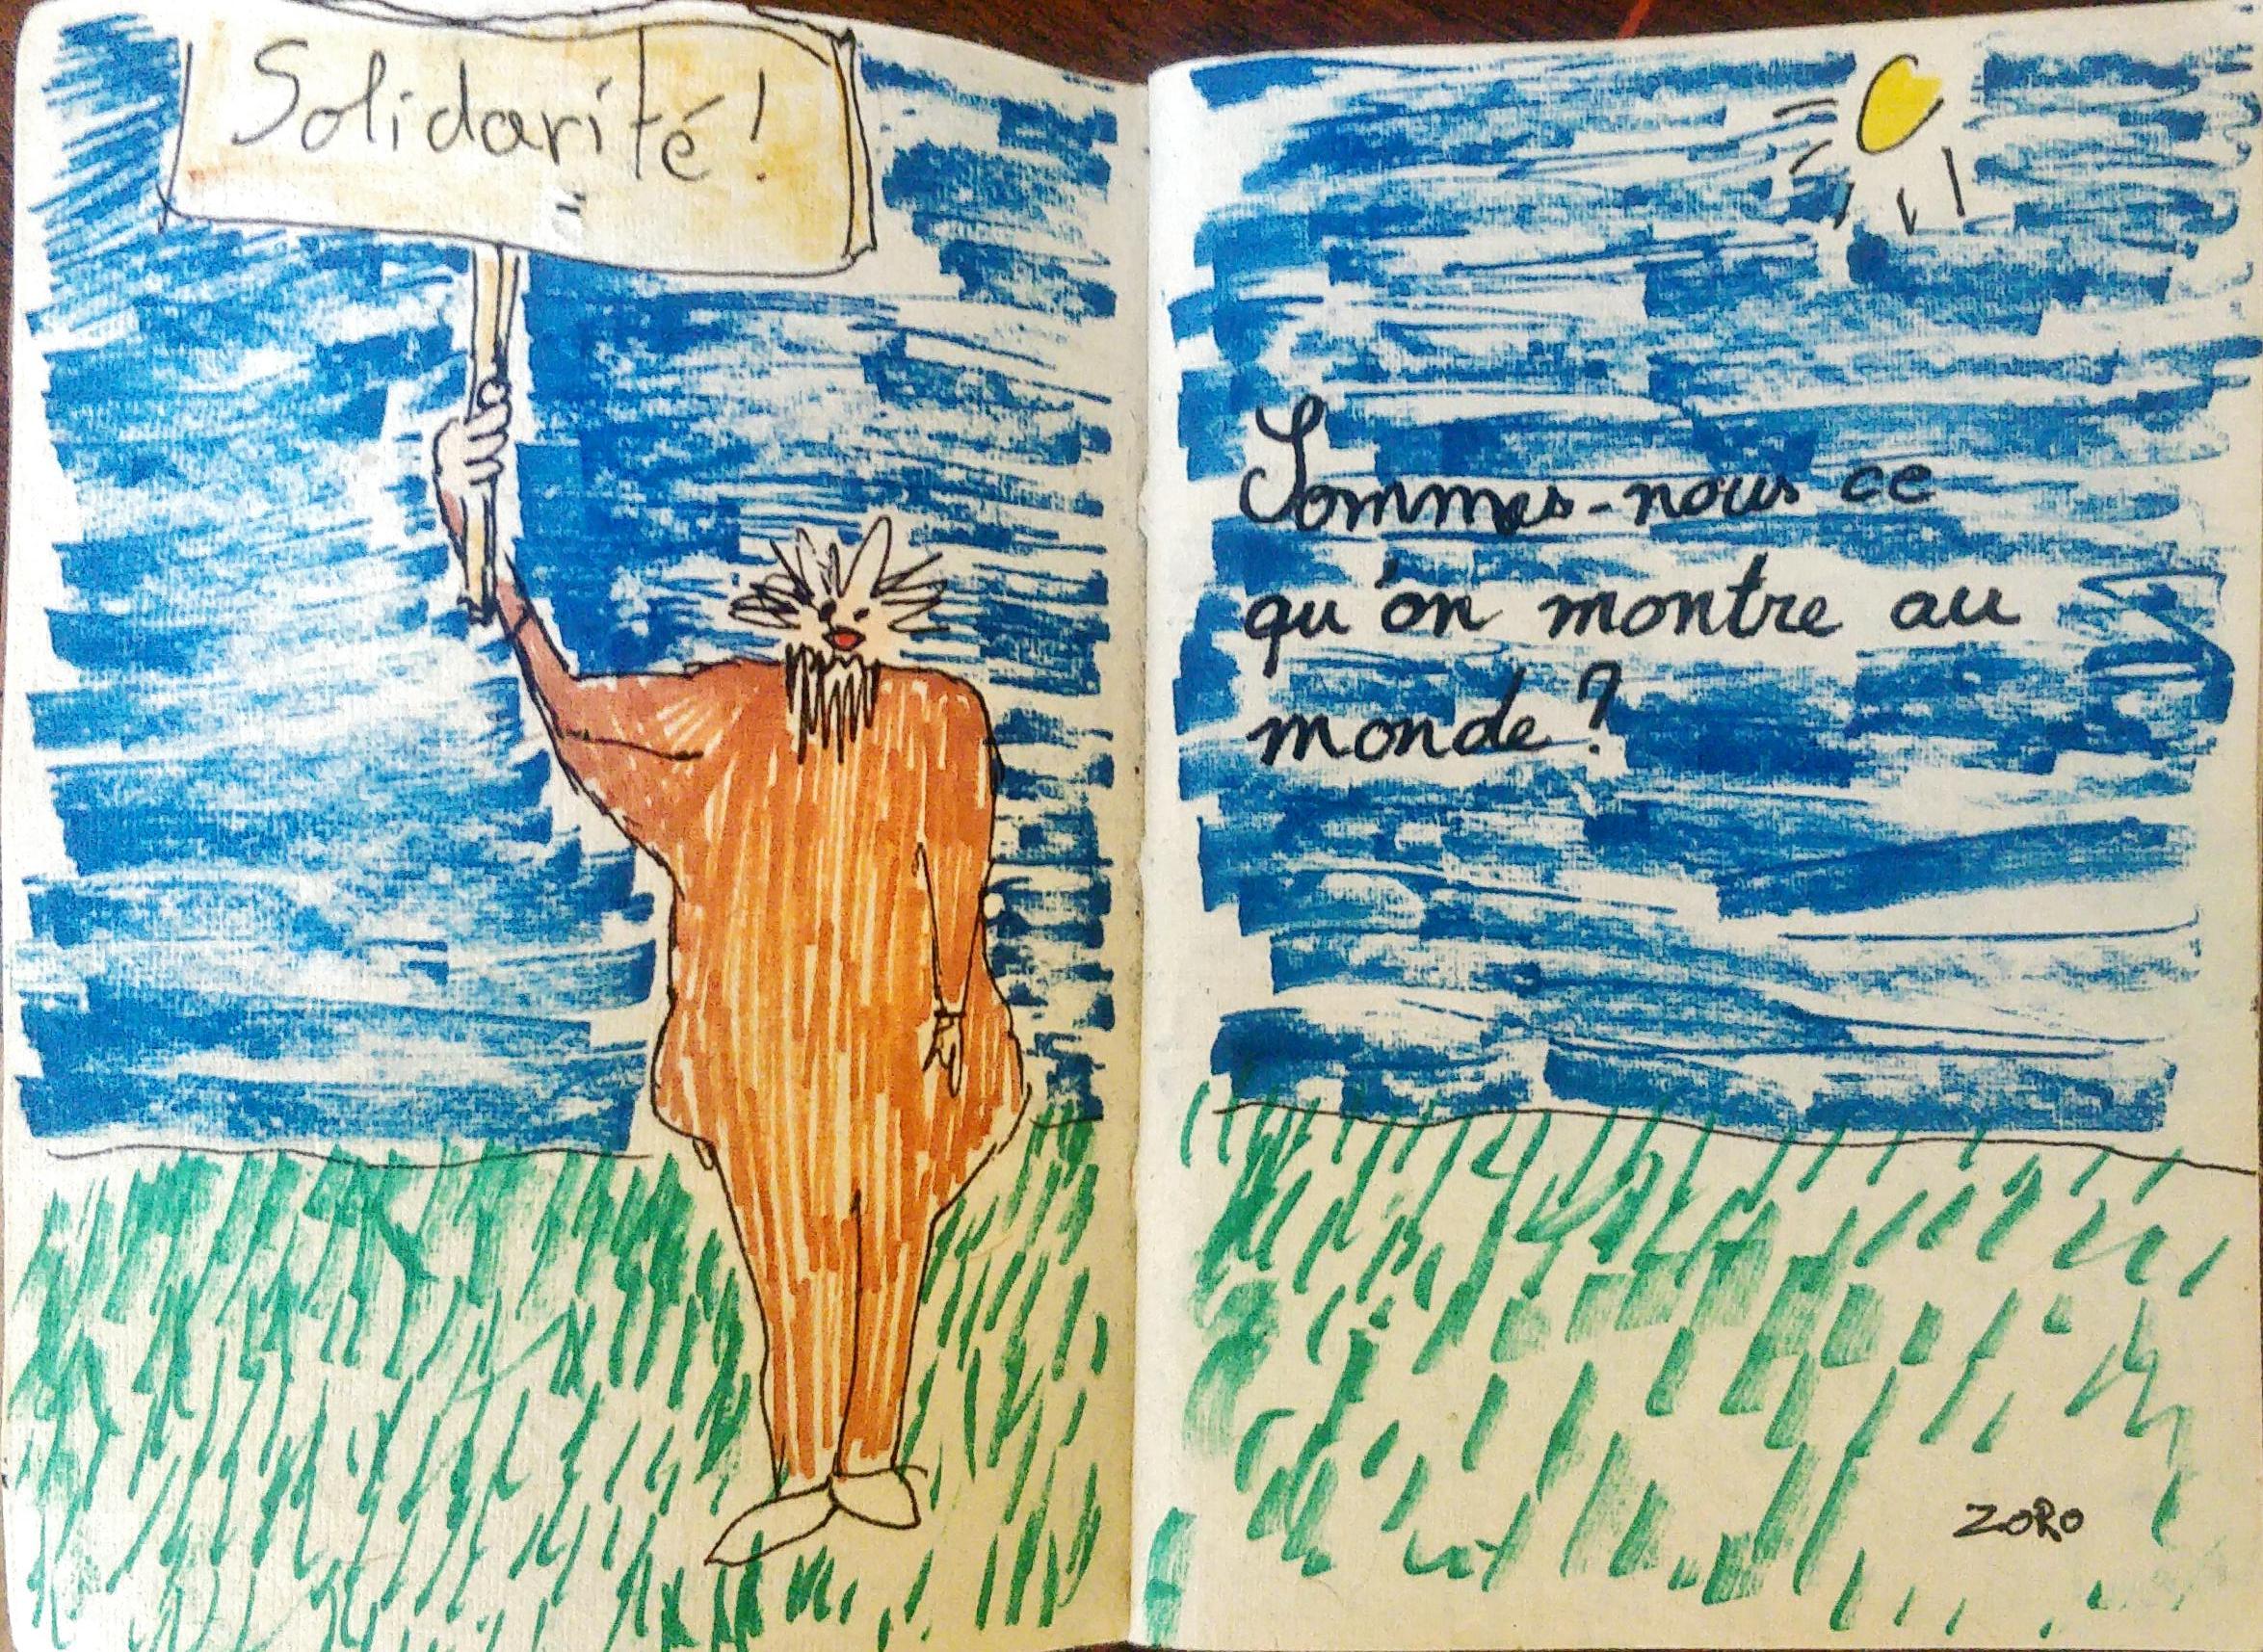 Solidarité !
Sommes-nous ce
qu'on montre au
monde ?
ZORO